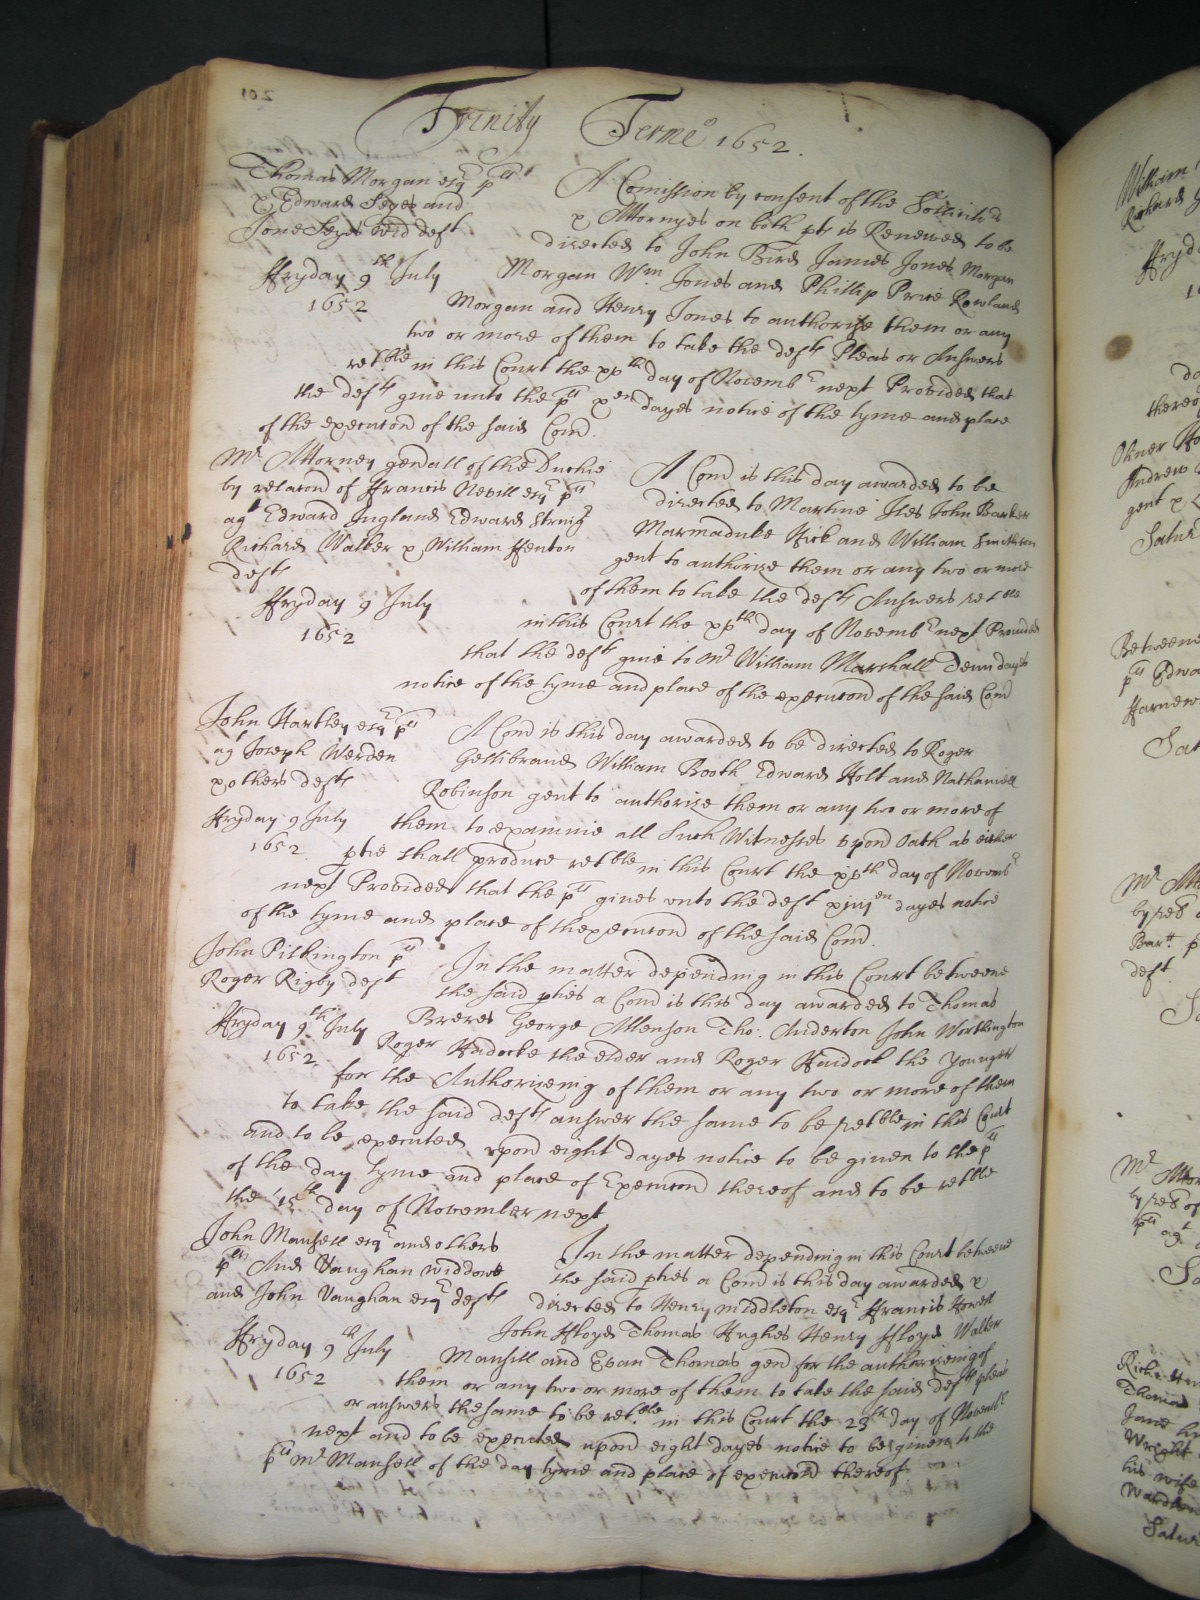 Trinity Terme 1652.
Thomas Morgan esqr plt
& Edward Seyes and
Jone Seyes wid deft
Ffryday 9th July
1652
A Comission by consent of the Sollicitrs
& Attornyes on both pts is Renewed to be
directed to John Bird James Jones Morgan
Morgan Wm Jones and Phillip Price Rowland
Morgan and Henry Jones to authorise them or any
two or more of them to take the defts Pleas or Answers
retble in this Court the xvth day of Novembr next Provided that
the defts give unto the plt xen dayes notice of the tyme and place
of the execucon of the said Com.
Mr Attorney genall of the Duchie
by relacon of Ffrancis Nevill esqr plt
agt Edward Ingland Edward
Richard Walker & William Ffenton
defts
Ffryday 9 July
1652
A Com is this day awarded to be
directed to Martine Iles John Barker
Marmaduke Hick and William Smithson
gent to authorize them or any two or more
of them to take the defts Answers retble
in this Court the xvth day of Novembr next Provided
that the defts give to Mr William Marshall Tenn dayes
notice of the tyme and place of the execucon of the said Com
John Hartley esqr plt
agt Joseph Werden
& others defts
Ffryday 9 July
1652
A Com is this day awarded to be directed to Roger
Gellibrand William Booth Edward Holt and Nathaniell
Robinson gent to authorize them or any two or more of
them to examine all such Witnesses upon Oath as either
ptie shall produce retble in this Court the xvth day of Novembr
next Provided that the plt gives unto the deft xiiijen dayes notice
of the tyme and place of thexecucon of the said Com.
John Pilkington plt
Roger Rigby deft
Ffryday 9th July
1652.
In the matter depending in this Court betweene
the said pties a Com is this day awarded to Thomas
Breres George Allenson Tho: Anderton John Worthington
Roger Haidocke the elder and Roger Haidock the Younger
for the Authorizeing of them or any two or more of them
to take the said defts answer the same to be retble in this Court
and to be executed upon eight dayes notice to be given to the plt
of the day tyme and place of Execucon thereof and to be retble
the 15th day of November next
John Mansell esqr and others
plts And Vaughan widdowe
and John Vaughan esqr defts
Ffryday 9th July
1652
In the matter depending in this Court betweene
the said pties a Com is this day awarded &
directed to Henry Middleton esqr Ffrancis Howell
John Ffloyd Thomas Hughes Henry Ffloyd Walter
Mansill and Evan Thomas gen for the authorizeing of
them or any two or more of them to take the said defts pleas
or answers the same to be retble in this Court the 23th day of Novembr
next and to be executed upon eight dayes notice to be given to the
plt Mr Mansell of the day tyme and place of execucon thereof